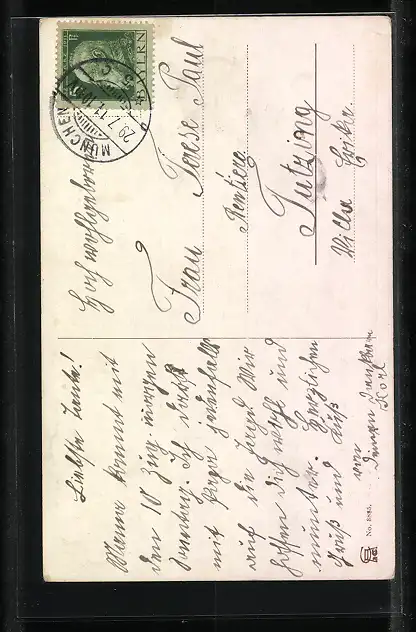 BAYERN
MÜNCHEN
29 7 11
Hochwohlgeboren
Frau Terese Paul
Rentiere
Tutzing
Villa Erika.
Liebste Tante!
Mama kommt mit
den 10 Zug morgen
Sonntag. Ich
mit Papa jedenfalls
auf die Jagd. Wir
hoffen dich wohl und
munter. Herzlichen
Gruß und Kuß
von
Deinem dankbaren
Karl
No. 5885.